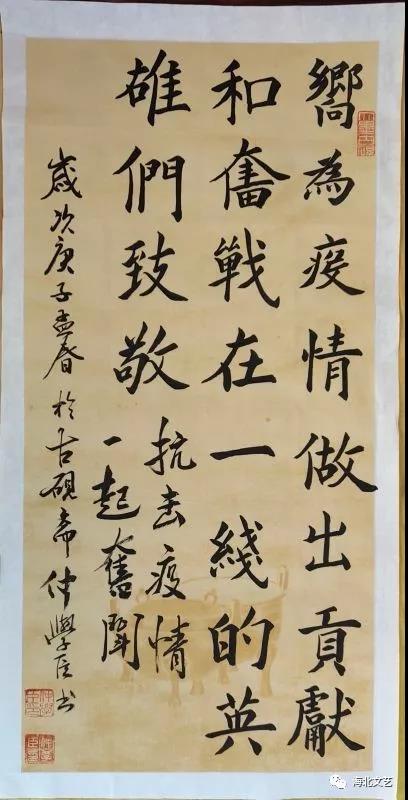 嚮為疫情做出貢獻
和奮戰在一綫的英
雄們致敬
抗击疫情
一起奮鬭
歲次庚子孟春於古硯斋仲學臣书
海北文艺